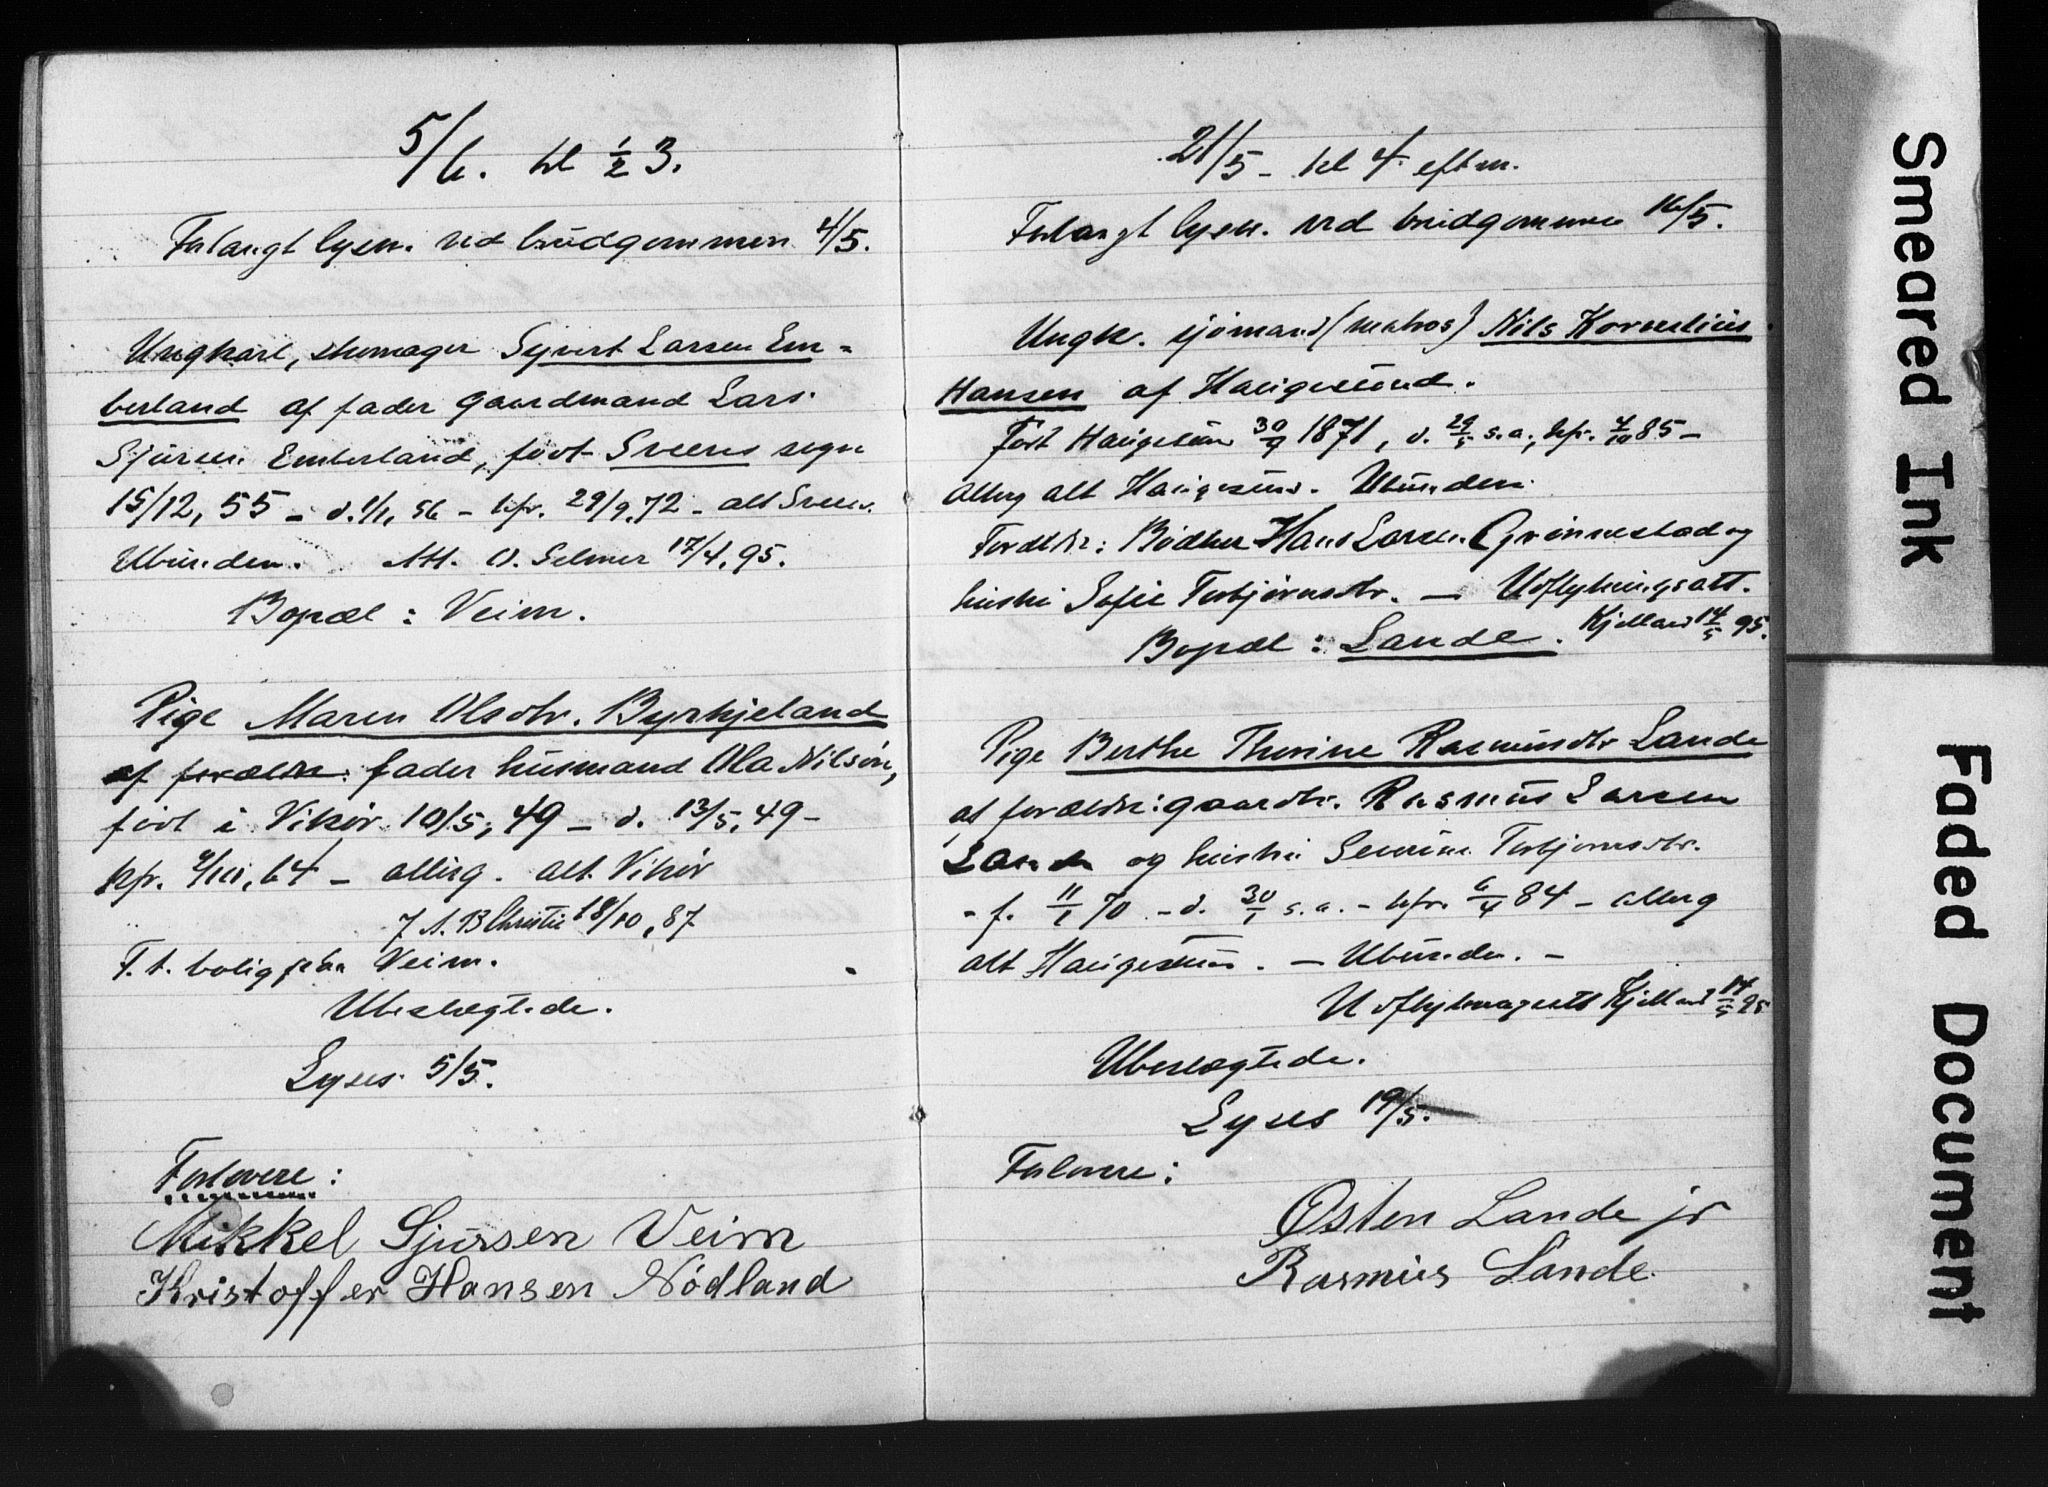 5/6. kl ½ 3.
Forlangt lysn. ved brudgommen 4/5.
Ungkarl, skomager Sjvert Larsen Em=
berland af fader gaardmand Lars
Sjursen Emberland, født Sveens sogn
15/12, 55 – d. 1/1, 56 – kfr. 29/9, 72 – alt Sveen.
Ubunden. Att. O. Selmer 17/4, 95.
Bopæl: Veim.
Pige Maren Olsdtr. Byrkjeland
af forældre: fader husmand Ola Nilsøn,
født i Vikør 10/5, 49 – d. 13/5, 49 –
kfr. /10, 64 – allerg. alt Vikør
A. B Christie 18/10, 87
F. t. bolig paa Veim.
Ubeslegtede.
Lyses 5/5.
Forlovere:
Mikkel Sjursen Veim
Kristoffer Hansen Nödland
21/5 – kl 4 eftm.
Forlangt lysn. ved brudgommen 16/5.
Ungk. sjömand (matros) Nils Kornelius
Hansen af Haugesund.
Født Haugesund 30/9 1871, d. 29/ s.a., kfr. 4/10 85 –
allerg alt Haugesund. Ubunden.
Forældr: Bødker Hans Larsen Grönnestad og
hustru Sofie Torbjørnsdtr. – Udflytningsatt.
Kjelland 14/5 95.
Bopæl: Lande.
Pige Berthe Thorine Rasmusdtr Lande
af forældre: gaardbr. Rasmus Larsen
Lande og hustru Severine Torbjørnsdtr.
– f. 11/1 70 – d. 30/1 s. a. – kfr. 6/4 84 – allerg
alt Haugesund. – Ubunden. –
Udflytningsatt Kjelland 14/5 95
Ubeslegtede.
Lyses 19/5.
Forlovere:
Østen Lande jr
Rasmus Lande.
Smeared Ink
Faded Document